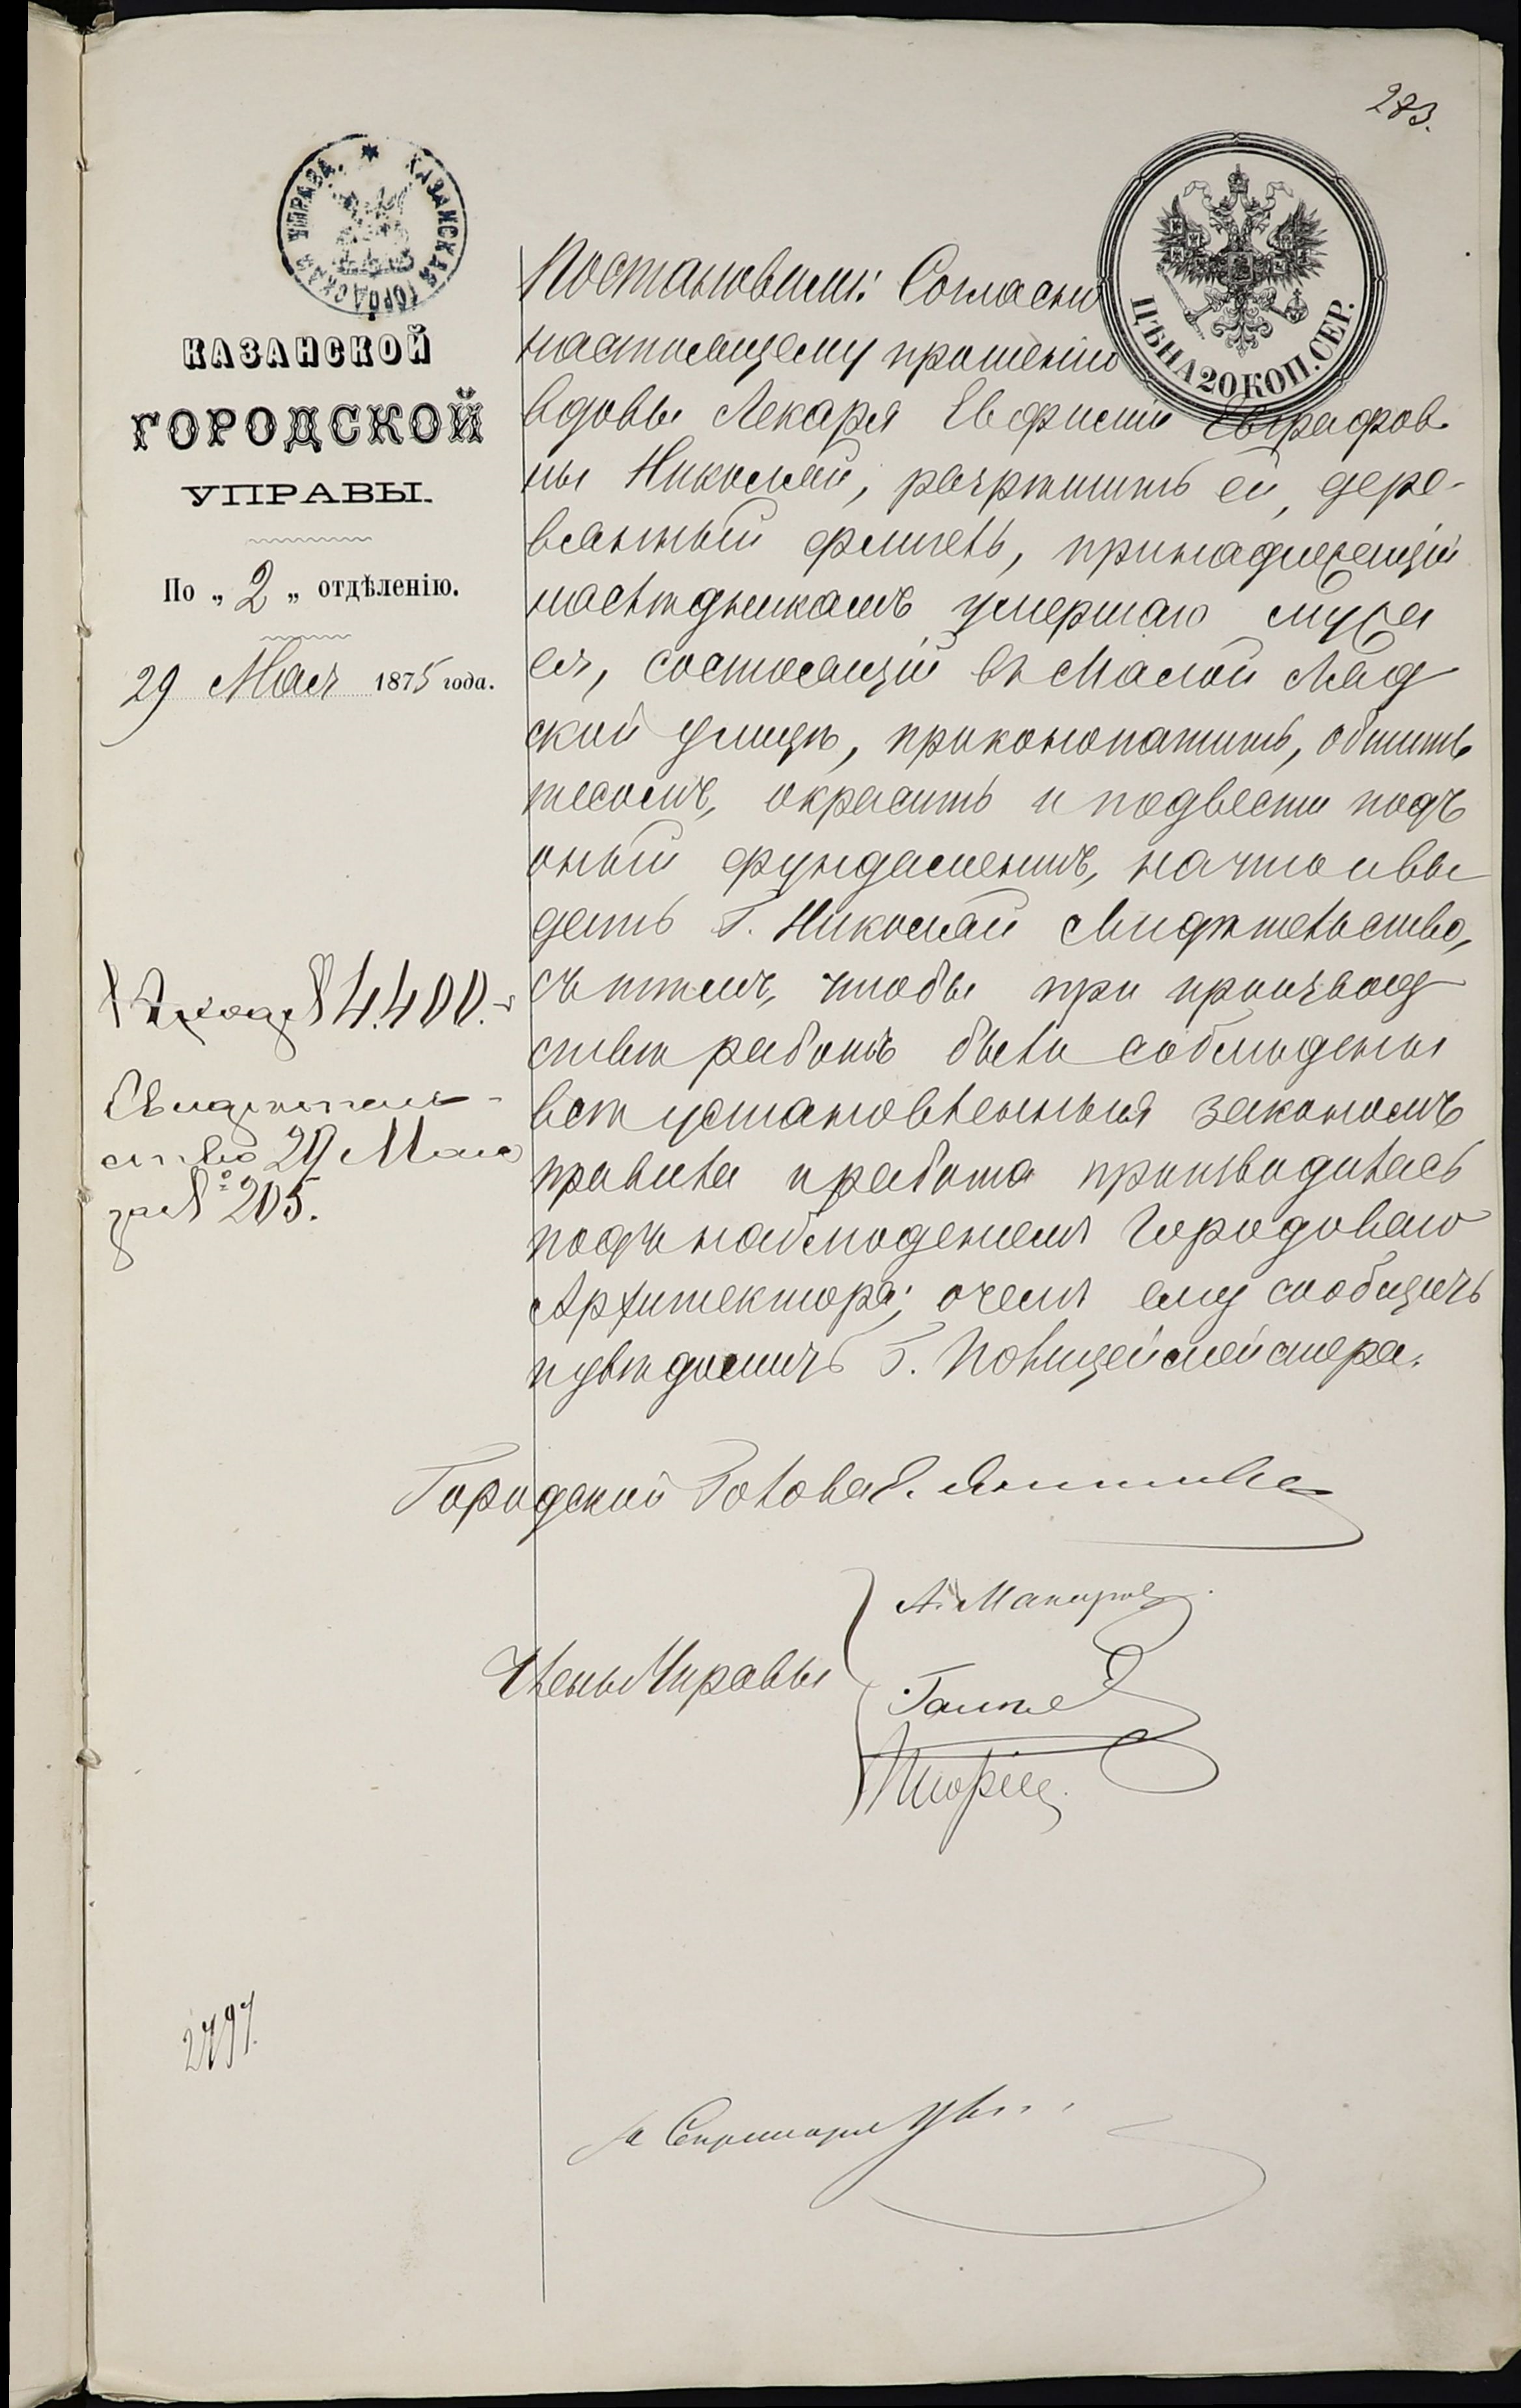 283.
КАЗАНСКАЯ ГОРОДСКАЯ УПРАВА
ЦѢНА 20 КОП. СЕР.
КАЗАНСКОЙ
ГОРОДСКОЙ
УПРАВЫ.
По „2„ отдѣленію.
29 Мая 1875 года.
Постановили: Согласно
настоящему прошенію
вдовы Лекаря Евфиміи Евграфов-
ны Николай, разрѣшить ей, дере-
вянный флигель, принадлежащій
наслѣдникамъ умершаго мужа
ея, состоящій въ Малой Ляд
ской улицѣ, проконопатить, обшить
тесомъ, окрасить и подвести подъ
оный фундаментъ, на что и вы
дать Г. Николай свидѣтельство,
съ тѣмъ, чтобы при производ
ствѣ работъ были соблюдены
всѣ установленныя закономъ
правила и работа производилась
подъ наблюденіемъ Городоваго
Архитектора; о чемъ ему сообщить
и увѣдомить Г. Полицеймейстера.
№ 4.400.
Свидѣтель-
ство 29 Мая
за № 205.
Городской Голова Е.
Члены Управы
А. Макаров
за Секретаря
2797.